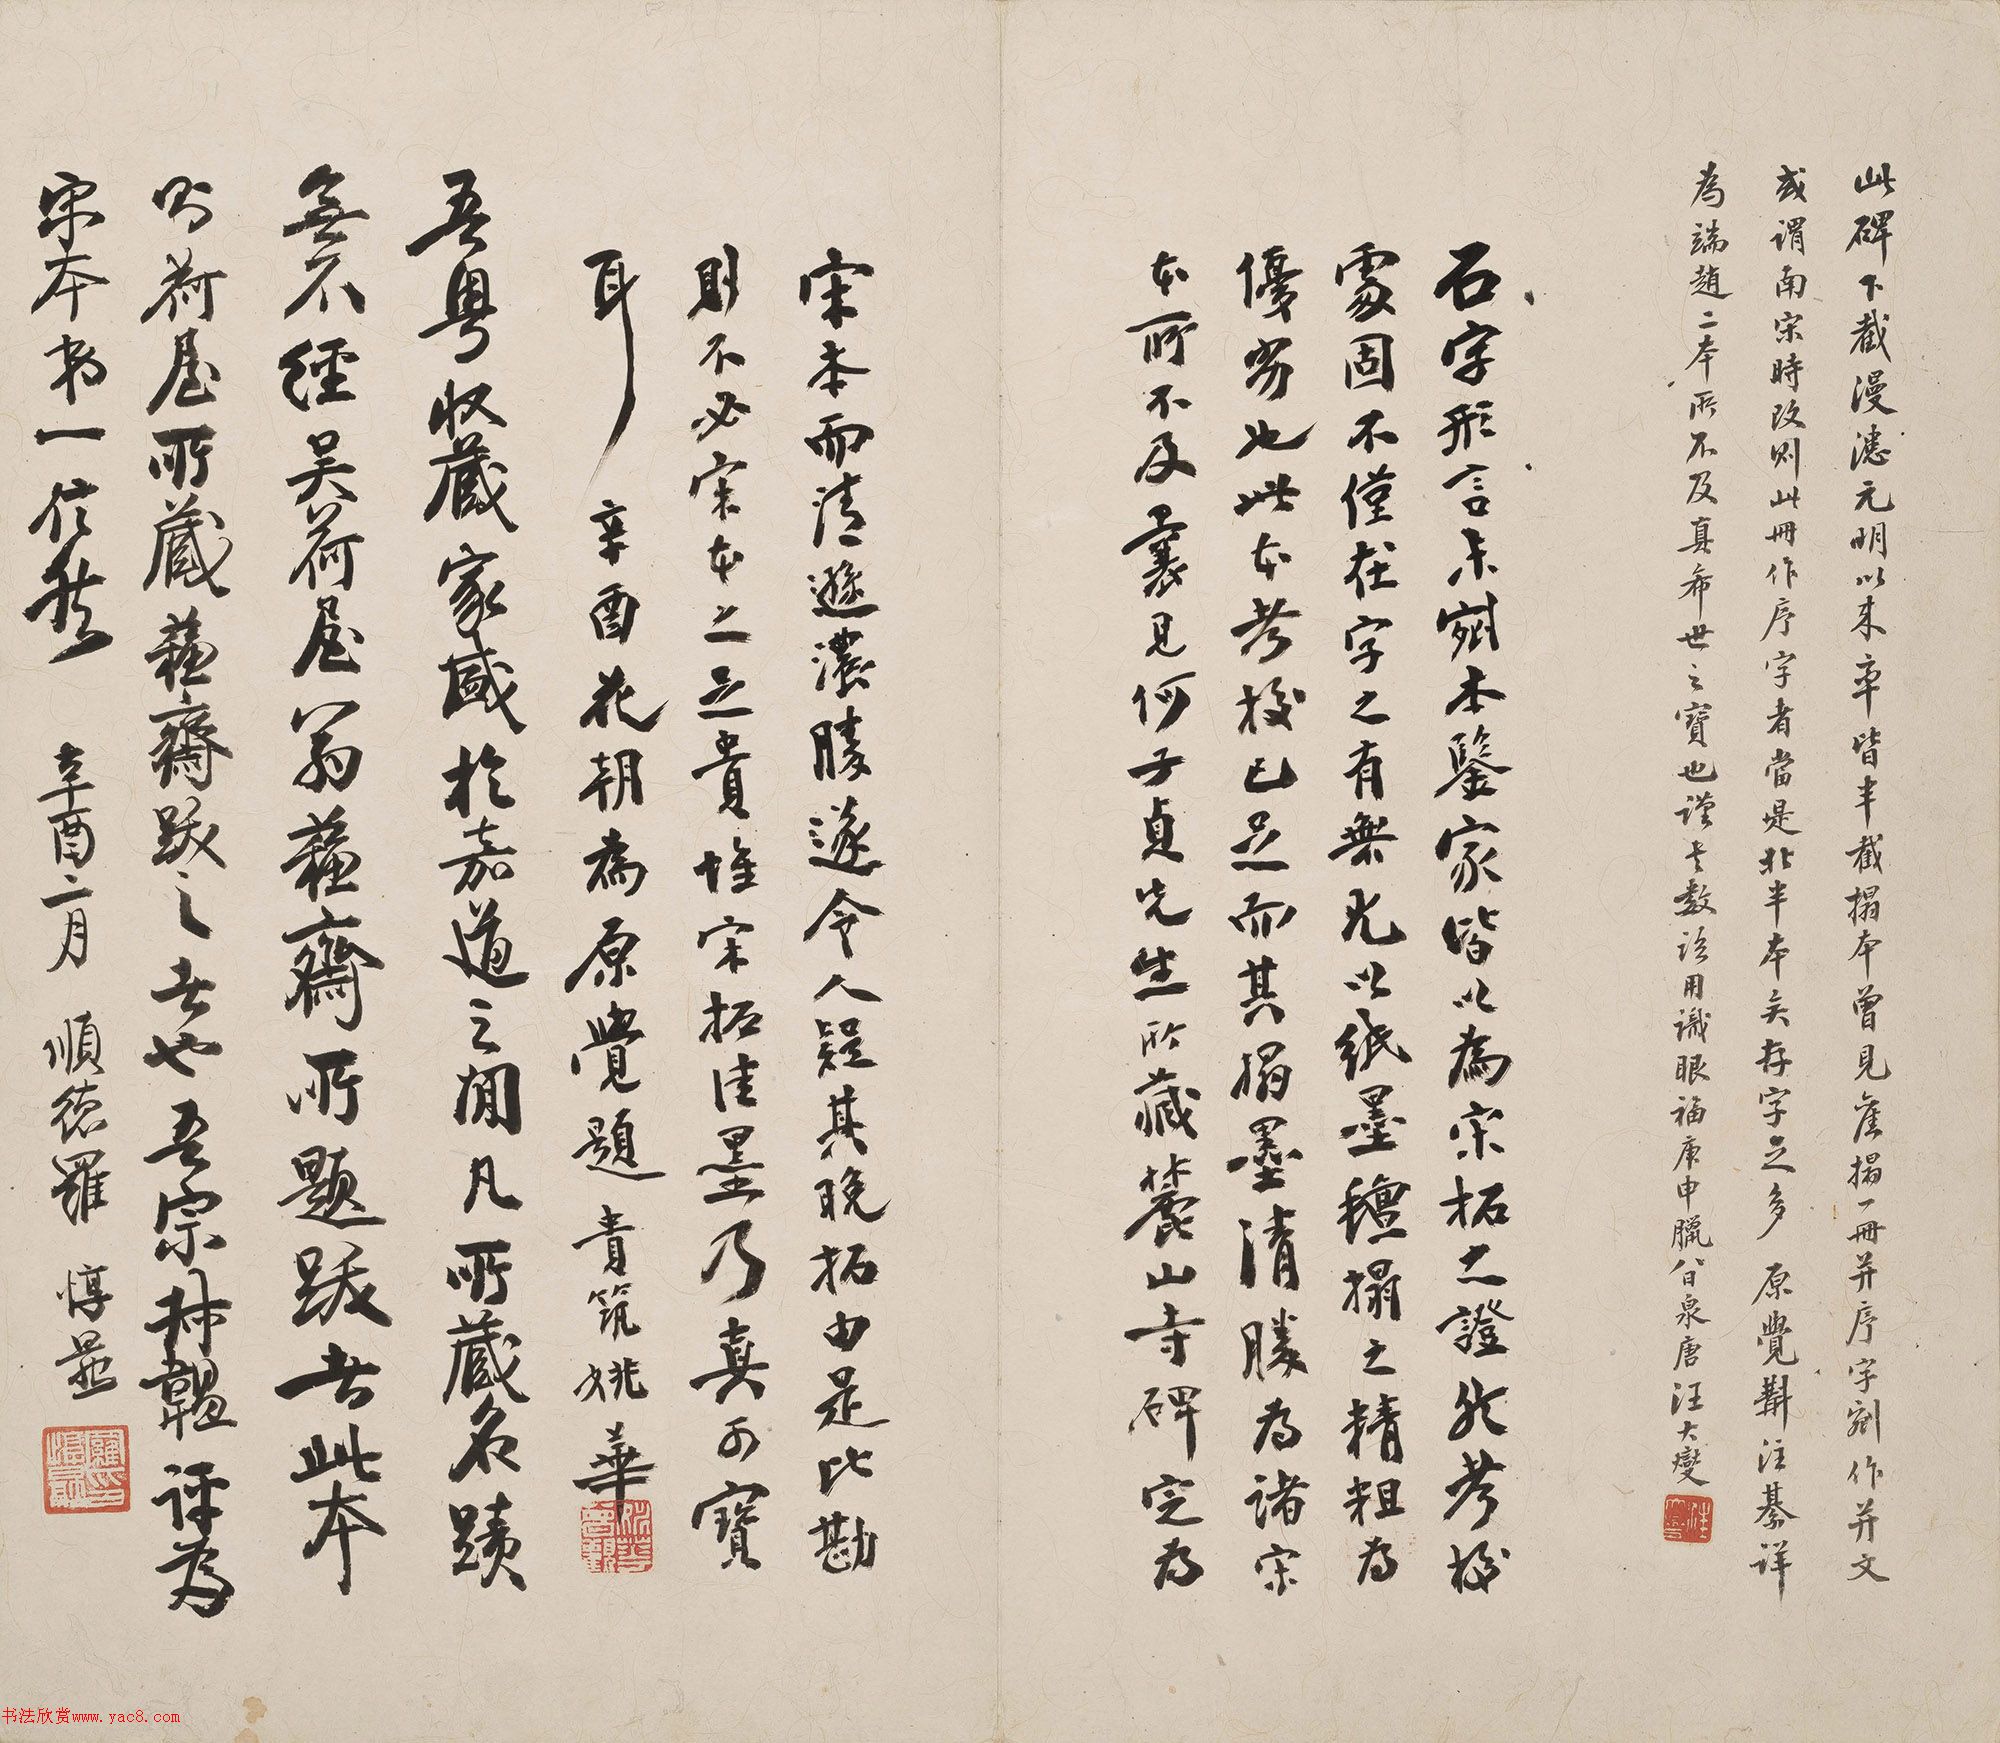 此碑下截漫漶元明以來率皆半截搨本曾見舊搨一冊并序字剜作并文
或謂南宋時改則此冊作序字者當是北半本矣存字之多 原覺斠注綦詳
為端趙二本所不及真希世之寶也謹書數語用識眼福庚申臘八日泉唐汪大燮
石字形言未剜本鑒家皆以為宋拓之證然考校
家固不僅在字之有無尤以紙墨氈搨之精粗為
優劣也此本考校已足而其搨墨清勝為諸宋
本所不及曩見何子貞先生所藏麓山寺碑定為
宋本而清遒濃勝遂令人疑其晚拓由是比勘
則不必宋本之足貴惟宋拓佳墨乃真可寶
耳 辛酉花朝為原覺題 貴筑姚華
吾粵收藏家盛於嘉道之間凡所藏名蹟
無不經吳荷屋翁蘓齋所題跋者此本
則荷屋所藏蘓齋跋之者也吾宗叔韞評為
宋本書一信然 辛酉二月 順德羅惇㬊
书法欣赏www.yac8.com